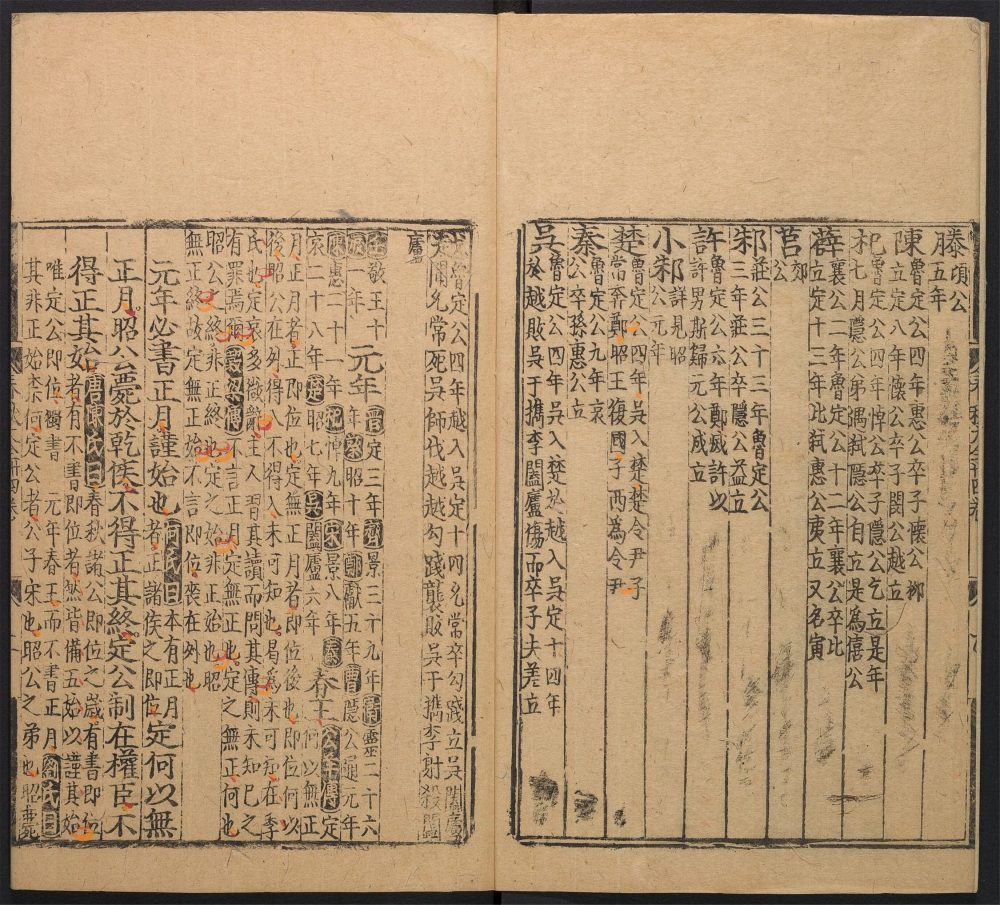 滕頃公
五年
陳魯定公四年惠公卒子懷公柳
立定八年懷公卒子閔公越立
杞魯定公四年悼公卒子隱公乞立是年
七月隱公弟遇弒隱公自立是為僖公
薛襄公二年魯定公十二年襄公卒比
立定十三年比弒惠公夷立又名寅
莒郊
公
邾莊公三十三年魯定公
三年莊公卒隱公益立
許魯定公六年鄭滅許以
許男斯歸元公成立
小邾詳見昭
公元年
楚魯定公四年吳入楚楚令尹子
常奔鄭昭王復國子西為令尹
秦魯定公九年哀
公卒孫惠公立
吳魯定公四年吳入楚於越入吳定十四年
於越敗吳于檇李闔廬傷而卒子夫差立
魯定公四年越入吳定十四允常卒勾踐立吳闔廬
聞允常死吳師伐越越勾踐襲敗吳于檇李射殺闔
廬
敬王十
一年
元年
晉定三年齊景三十九年衛靈二十六
年蔡昭十年鄭獻五年曹隱公通元年
陳惠二十一年杞悼九年宋景八年秦
哀二十八年楚昭七年吳闔廬六年
春王
公羊傳定
何以無正
月正月者正即位也定無正月者即位後也即位何以
後昭公在外得入不得入未可知也曷為未可知在季
氏也定哀多微辭主人習其讀而問其傳則未知己之
有罪焉爾穀梁傳不言正月定無正也定之無正何也
昭公之終非正終也定之始非正始也昭
無正終故定無正始不言即位喪在外也
元年必書正月謹始也何氏曰本有正月
者正諸侯之即位定何以無
正月昭公薨於乾侯不得正其終定公制在權臣不
得正其始唐陳氏曰春秋諸公即位之歲有書即位
者有不書即位者然皆備五始以謹其始
唯定公即位獨書元年春王而不書正月劉氏曰
其非正始奈何定公者公子宋也昭公之弟也昭薨